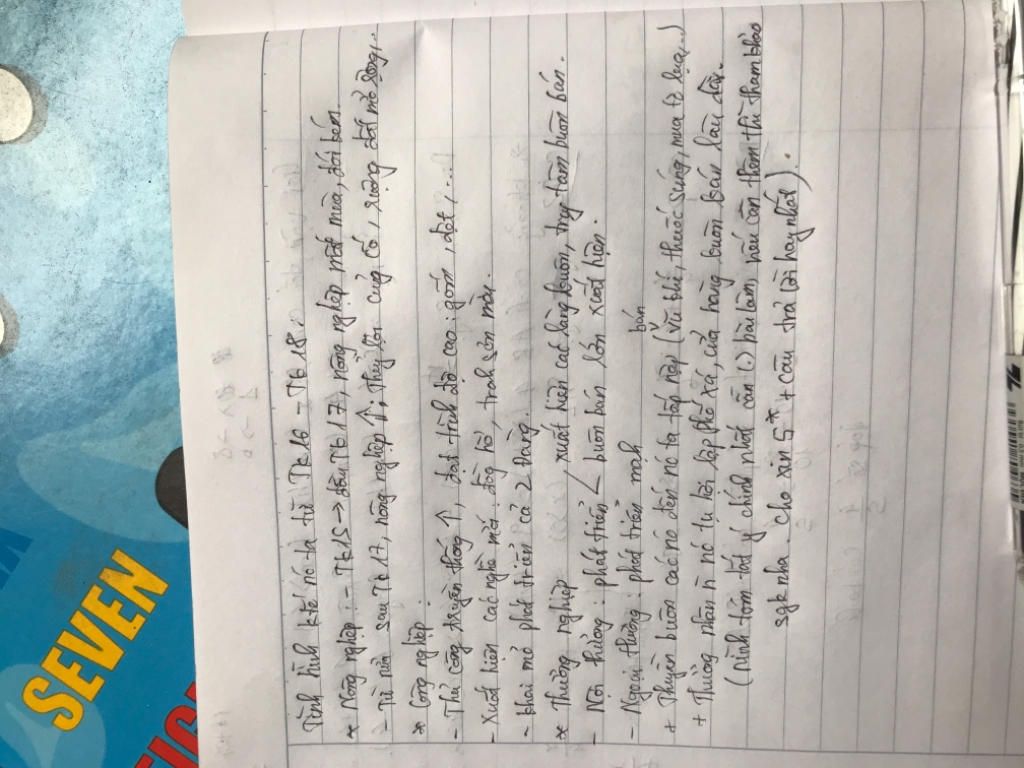 Tình hình ktế nc ta từ TK16 - TK18.
* Nông nghiệp: - TK15 → đầu TK17, nông nghiệp mất mùa, đói kém.
- Từ nửa sau TK17, nông nghiệp ↑, thuỷ lợi củng cố, ruộng đất mở rộng,..
* Công nghiệp.
- Thủ công truyền thống ↑, đạt trình độ cao: gốm, dệt, ...
- Xuất hiện các nghề mới: đồng hồ, tranh sơn mài.
- Khai mỏ phát triển cả 2 Đàng.
* Thương nghiệp , xuất hiện các làng buôn, trung tâm buôn bán.
- Nội thương: phát triển < buôn bán lớn xuất hiện.
- Ngoại thương: phát triển mạnh
+ Thuyền buôn các nc đến nc ta tấp nập (bán vũ khí, thuốc súng, mua tơ lụa,..)
+ Thương nhân n` nc tụ hội lập phố xá, cửa hàng buôn bán lâu dài.
(mình tóm tắt ý chính nhất cần (.) bài làm, nếu cần thêm thì tham khảo
sgk nha. Cho xin 5* + câu trả lời hay nhất).
SEVEN